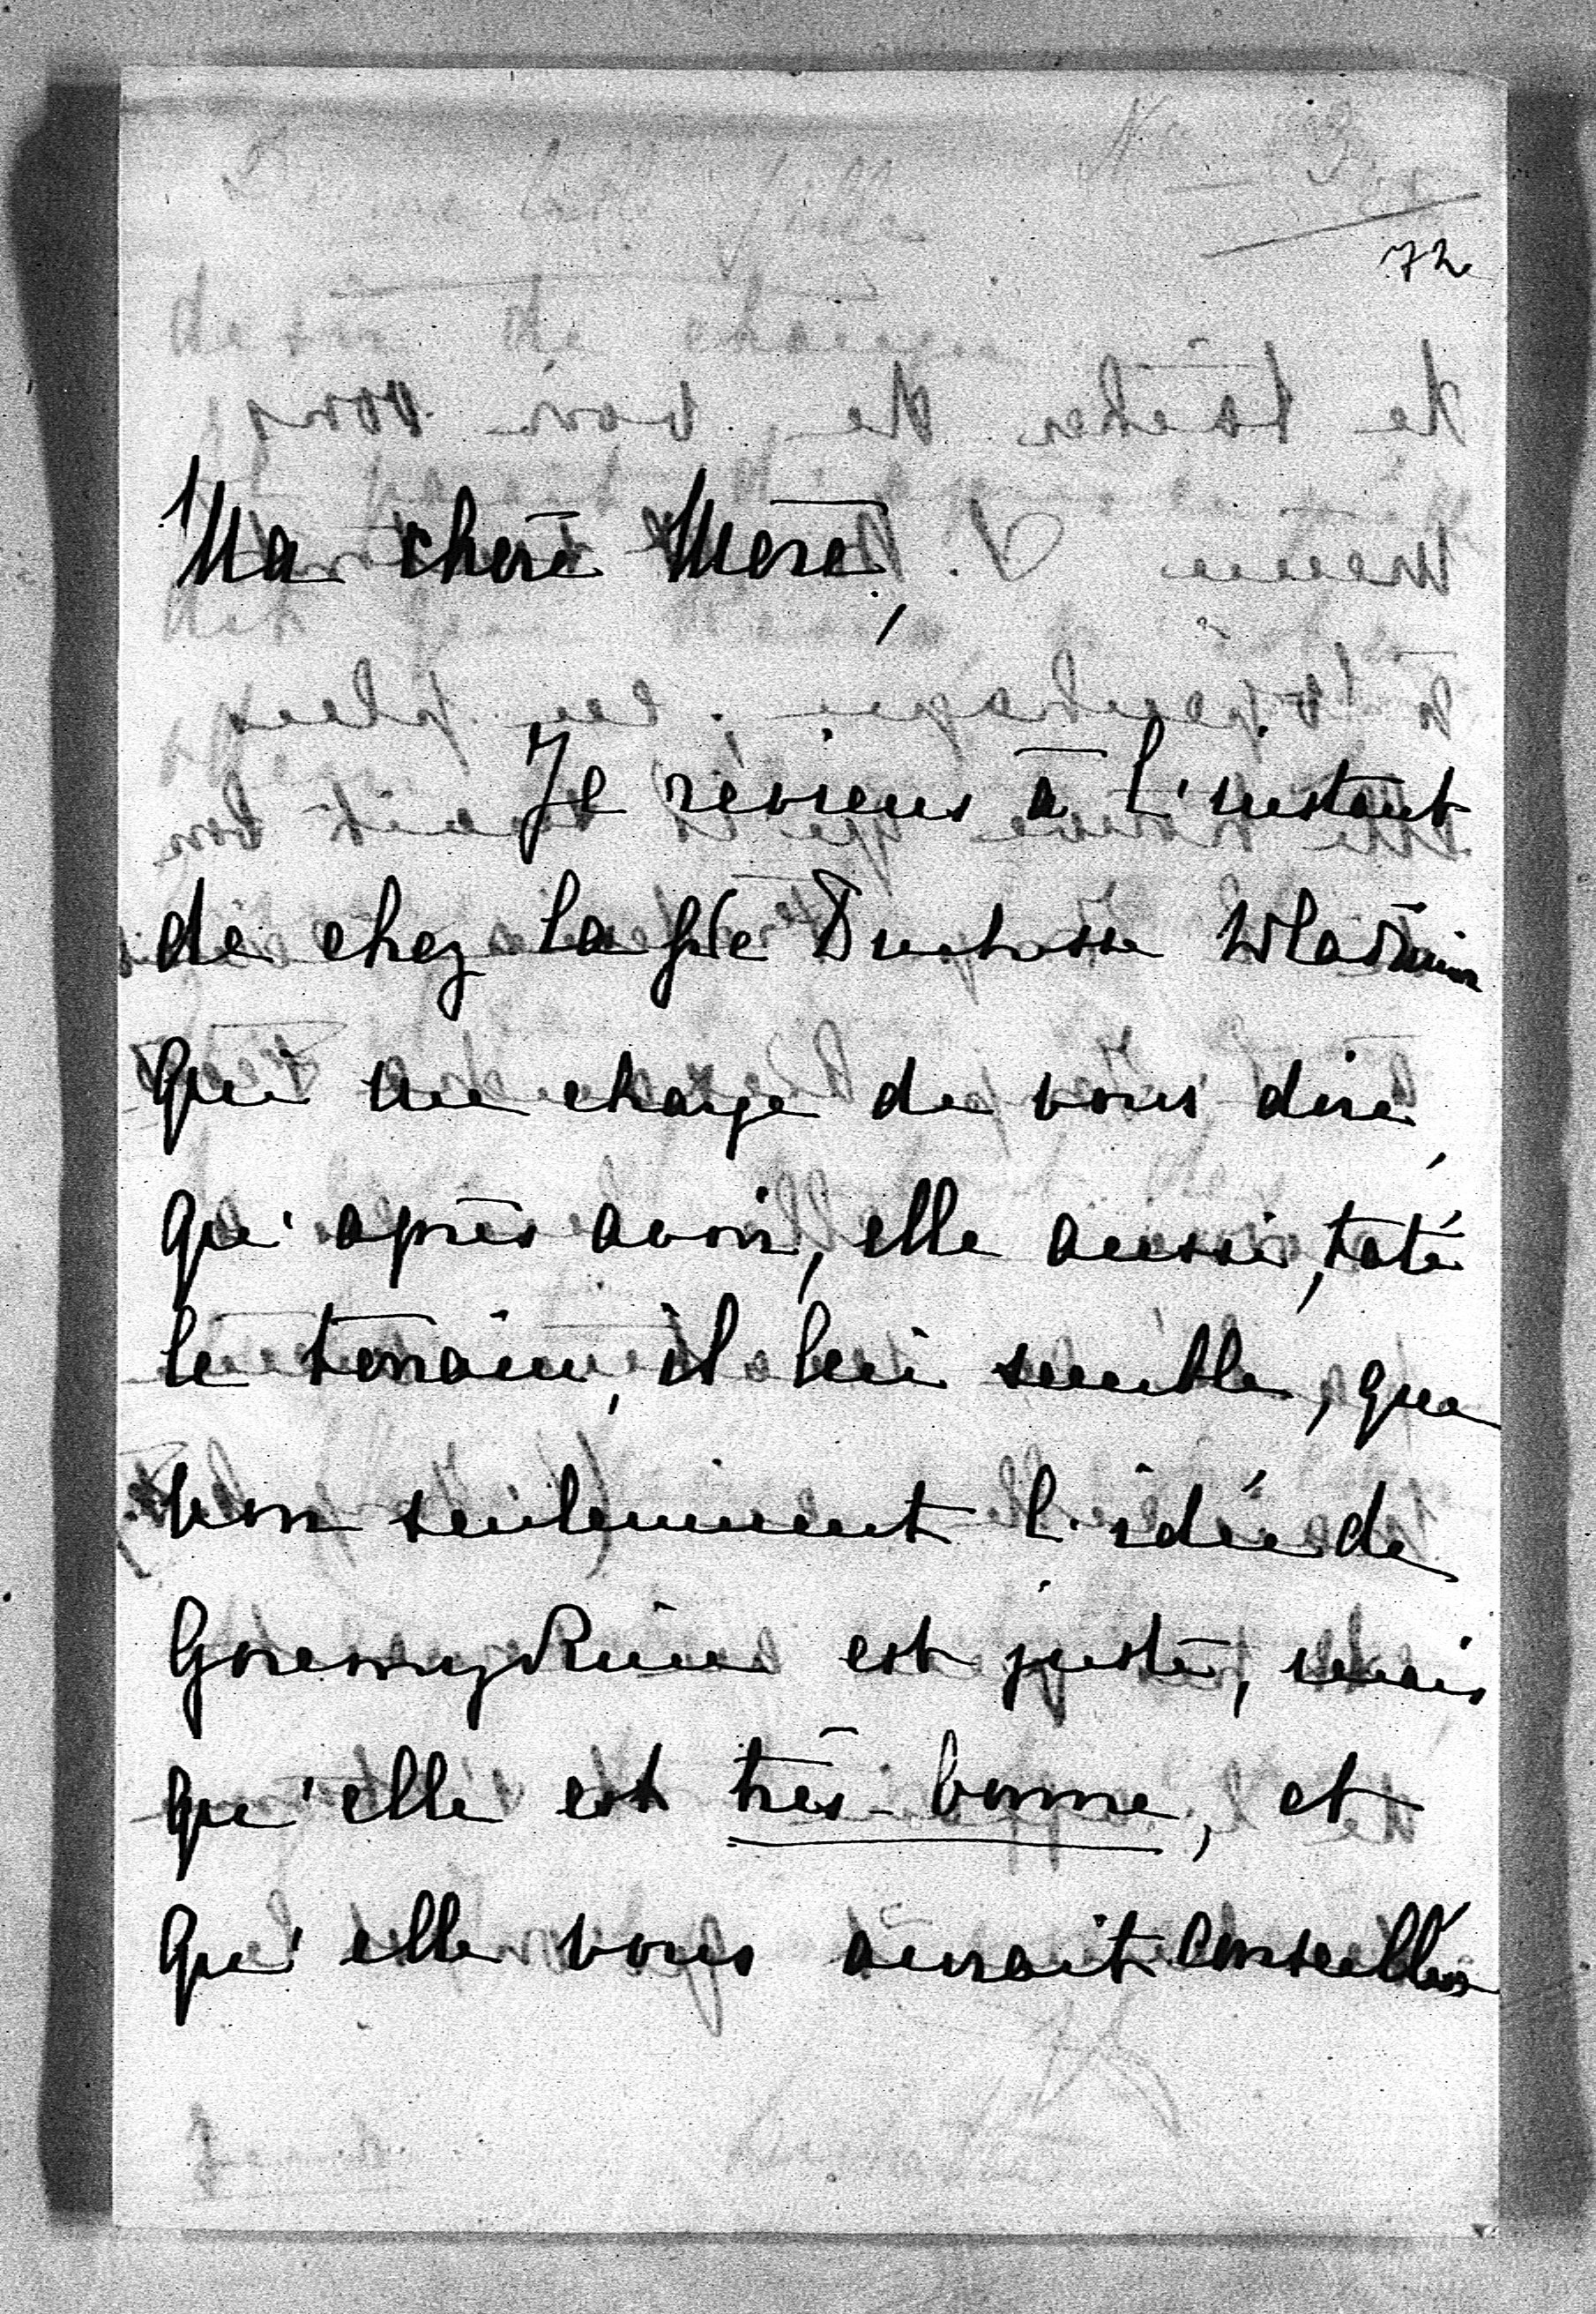 72
Ma chère Mère,
Je reviens à l'instant
de chez la Gde Duchesse Wladimir
qui me charge de vous dire,
qu'après avoir, elle aussi, taté
le terrain, il lui semble, que
non seulement l'idée de
Goremykine est juste, mais
qu'elle est très bonne, et
qu'elle vous aurait conseillée